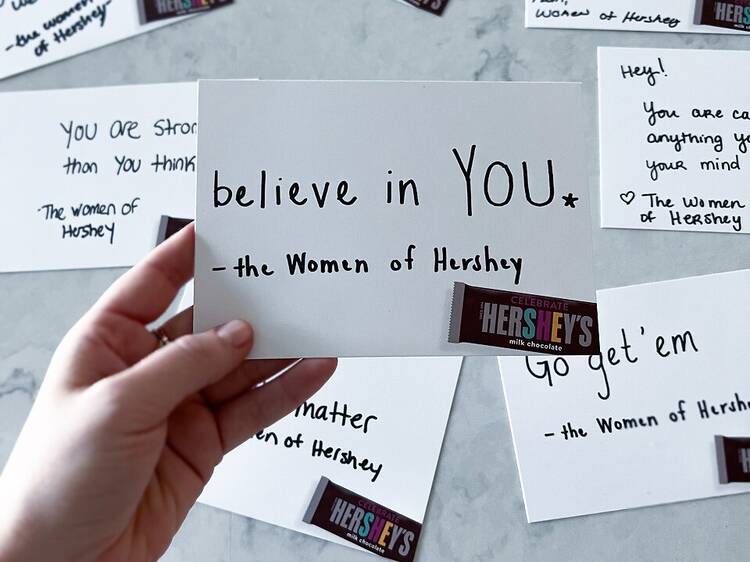 -the women
of Hershey-
Women of Hershey
You are stron
than You think
-The women of
Hershey
believe in YOU.*
-the Women of Hershey
CELEBRATE
HERSHEY'S
milk chocolate
Hey!
You are ca
anything y
your mind
♡ The Women
of Hershey
matter
en of Hershey
CELEBRATE
HERSHEY'S
milk chocolate
Go get 'em
- the Women of Hersh